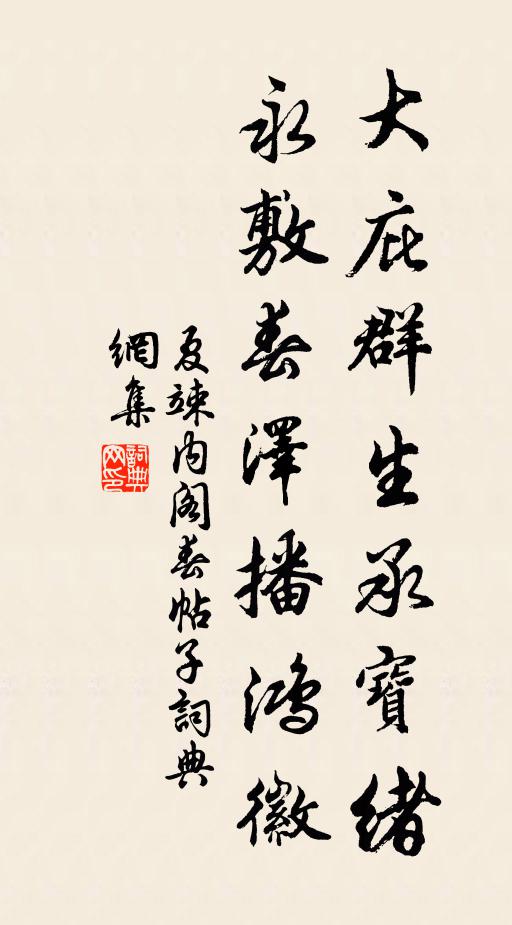 大庇群生承寶緒
永敷春澤播鴻徽
夏竦內閣春帖子詞典
網集
詞典網印